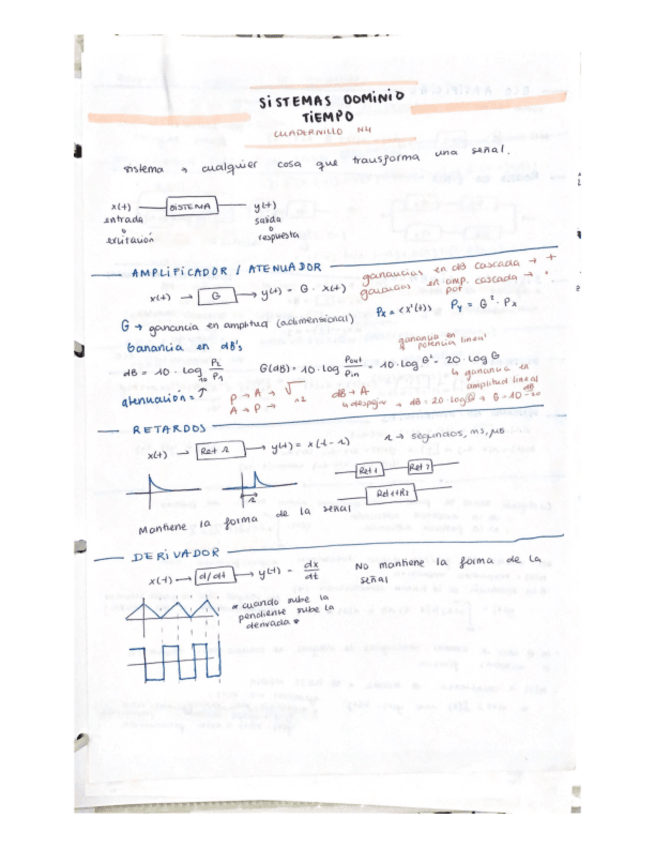 SISTEMAS DOMINIO
TIEMPO
CUADERNILLO N4
sistema → cualquier cosa que transforma una señal.
x(t) SISTEMA y(t)
entrada salida
o o
excitación respuesta
AMPLIFICADOR / ATENUADOR
ganancias en dB cascada → +
ganancias en amp. cascada → ·
por
x(t) → G → y(t) = G · x(t)
Px = <x²(t)> Py = G² · Px
G → ganancia en amplitud (adimensional)
Ganancia en dB's
ganancia en
potencia lineal
dB = 10 · log10 P2/P1 G(dB) = 10 · log Pout/Pin = 10 · log G² = 20 · log G
↳ ganancia en
amplitud lineal
atenuación = ↑
P → A → √ dB → A
A → P → ^2 ↳ despejar → dB = 20 · log G → G = 10^dB/20
RETARDOS
x(t) → Ret r → y(t) = x(t - r) r → segundos, ms, μs
Ret 1 Ret 2
r
Ret1+R2
Mantiene la forma de la señal
DERIVADOR
x(t) → d/dt → y(t) = dx/dt
No mantiene la forma de la
señal
* cuando sube la
pendiente sube la
derivada *